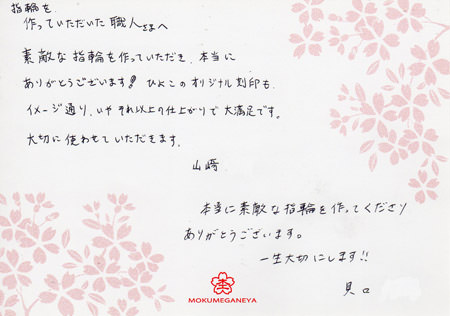 指輪を
作っていただいた職人さまへ
素敵な指輪を作っていただき、本当に
ありがとうございます! ひよこのオリジナル刻印も、
イメージ通り、いやそれ以上の仕上がりで大満足です。
大切に使わせていただきます。
山崎
本当に素敵な指輪を作ってくださり
ありがとうございます。
一生大切にします!!
貝口
MOKUMEGANEYA